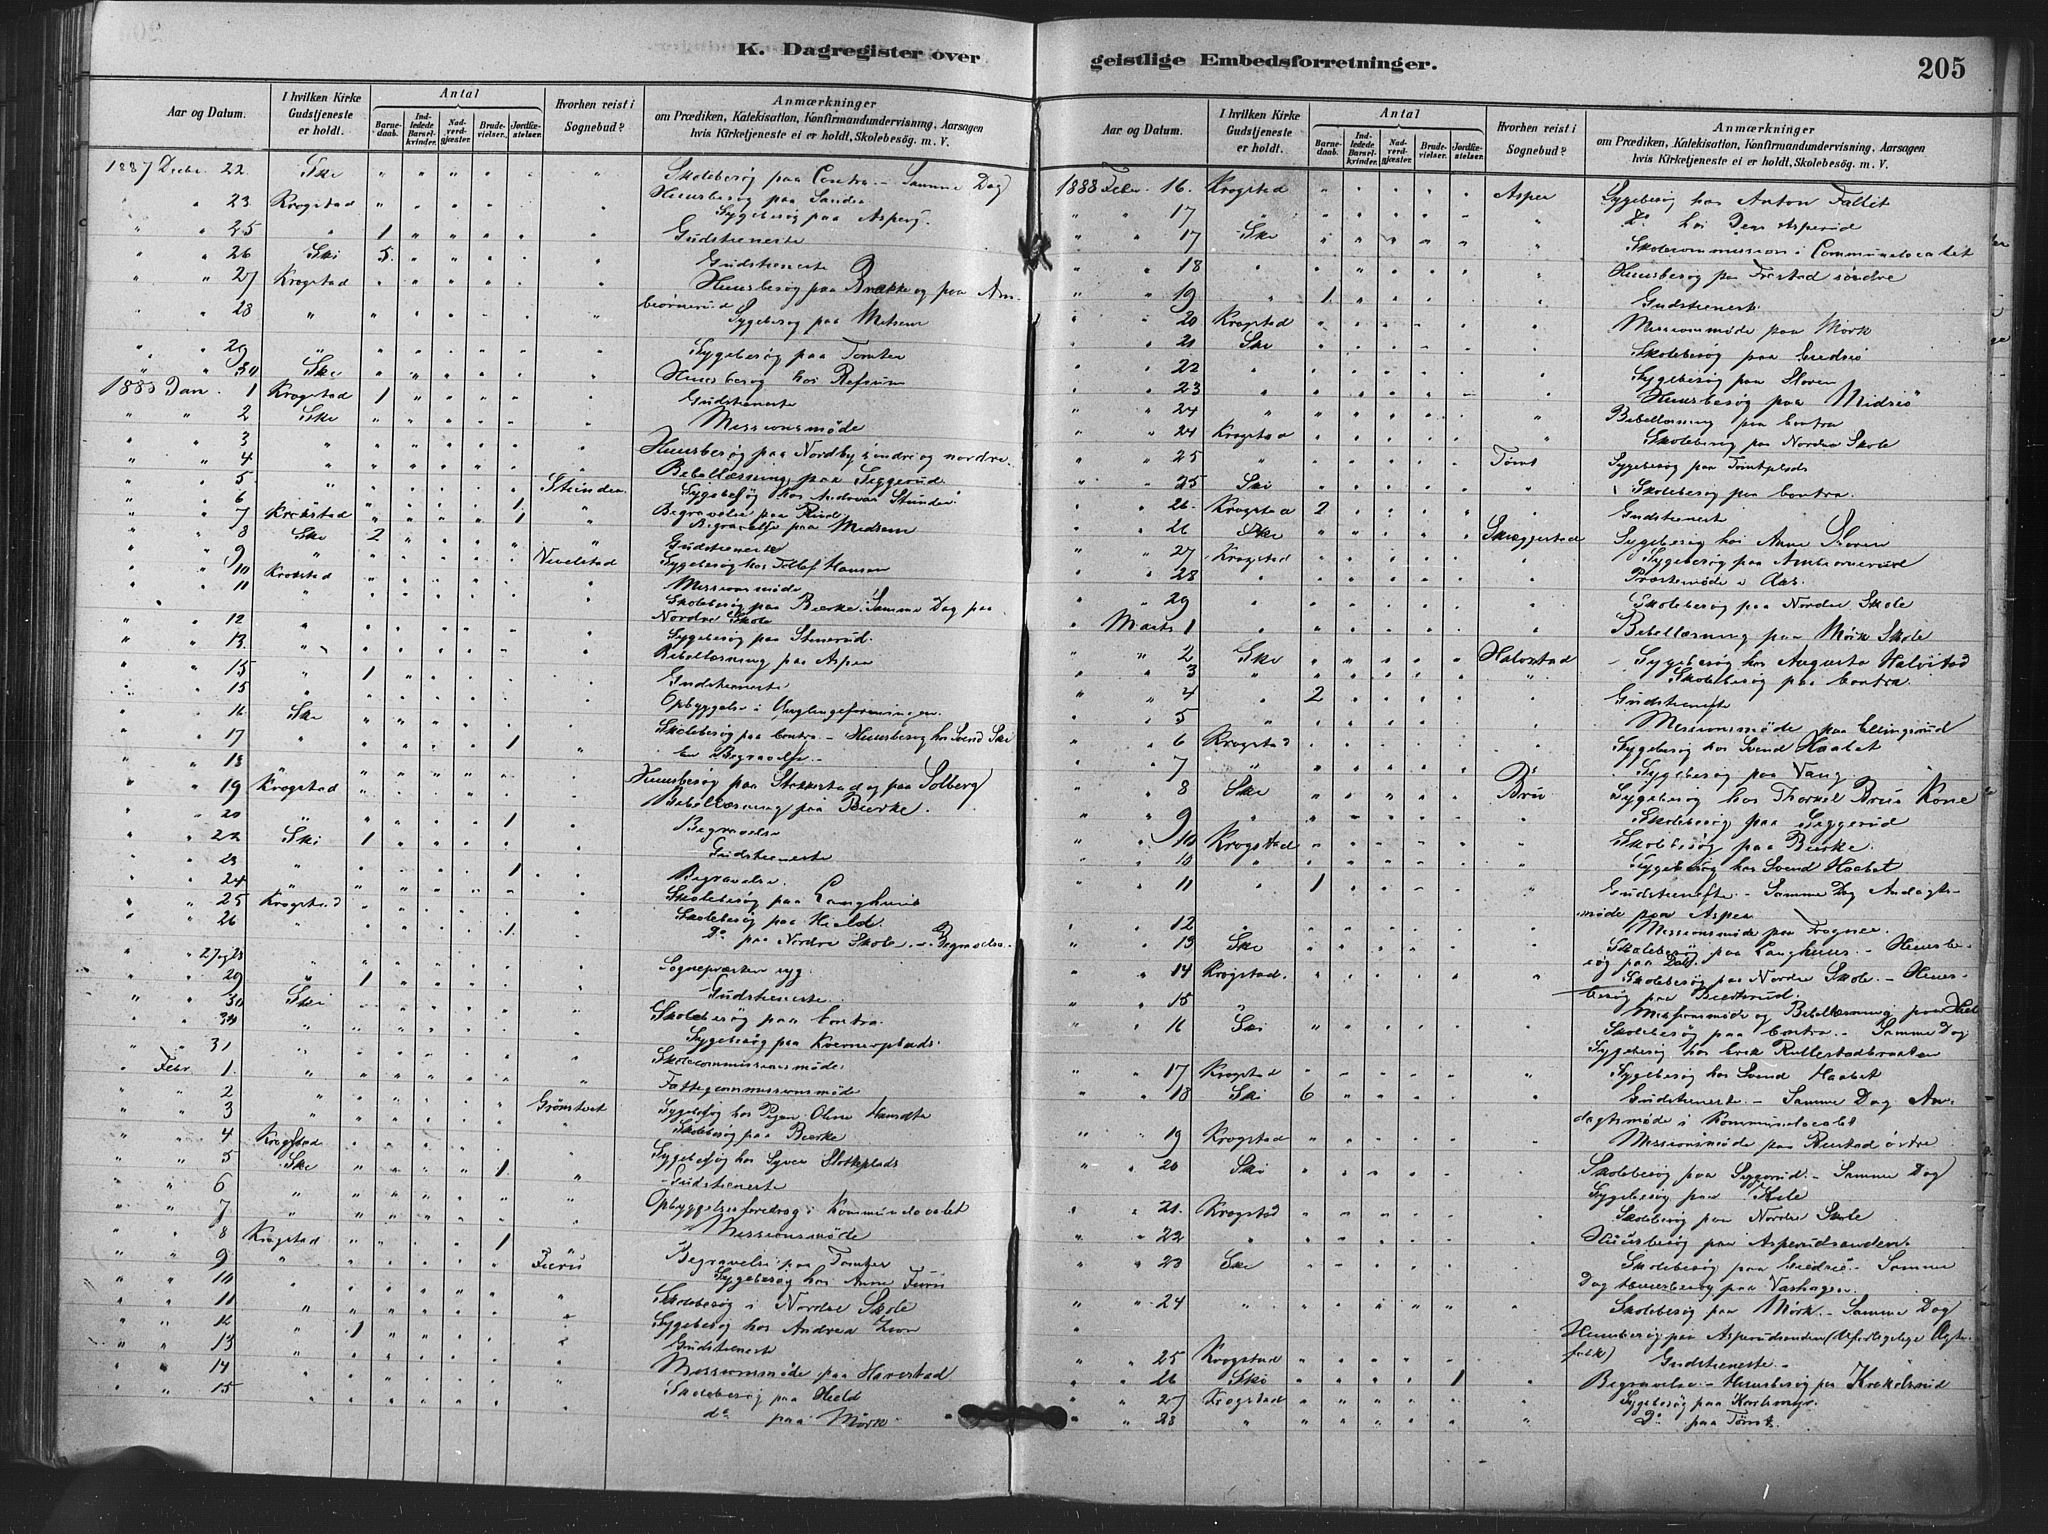 K. Dagregister over
geistlige Embedsforretninger.
205
Aar og Datum.
I hvilken Kirke Gudstjeneste er holdt.
Antal
Barnedaab.
Indledede Barselkvinder.
Nadverdgjæster.
Brudevielser.
Jordfæstelser.
Hvorhen reist i Sognebud?
Anmærkninger
om Prædiken, Katekisation, Konfirmandundervisning, Aarsagen
hvis Kirketjeneste ei er holdt, Skolebesög. m. V.
1887 Decbr. 22. Ski Skolebesög paa Contra. – Samme Dag
" " 23. Krogstad Huusbesög paa Sandre
Sygebesög paa Asperj.
" " 25 " 1 Gudstieneste
" " 26 Ski 5. Gudstieneste
" " 27 Krogstad Huusbesög paa Brække og paa Am-
biørnerud
" " 28 " Sygebesög paa Midsem
" " 29 " Sygebesög paa Tomter
" " 30 Ske Huusbesög hos Refsum
1888 Jan. 1 Krogstad 1 Gudstieneste
" " 2 Ske Missionsmöde
" " 3 " Huusbesög paa Nordby söndre og nordre.
" " 4 " Bibellæsning paa Siggerud
" " 5 " Stunder Sygebesög hos Andreas Stunder
" " 6 " 1 Begravelse paa Ruud
" " 7 Krogstad 1 Begravelse paa Midsem
" " 8 Ski 2 Gudstieneste
" " 9 " Nevelstad Sygebesög hos Tollef Hansen
" " 10 Krogstad Missionsmöde
" " 11 " Skolebesög paa Bierke. Samme Dag paa
Nordre Skole
" " 12 " Sygebesög paa Stenerud.
" " 13 " Bibellæsning paa Aspen
" " 15 " 1 Gudstieneste
" " 15 " Opbyggelse i Ynglingeforeningen.
" " 16 Ske Skolebesög paa Contra – Huusbesög hos Svend Ski
" " 17 " 1 En Begravelse.
" " 18
" " 19 Krogstad Huusbesög paa Stokkestad og paa Solberg
" " 20 " 1 Bibellæsning paa Bierke.
Begravelse
" " 22 Ski 1 Gudstieneste
" " 23 " 1 Begravelse.
" " 24 " Skolebesög paa Langhuus
" " 25 Krogstad Skolebesög paa Hield.
" " 26 " 1 Do paa Nordre Skole. – Begravelse.
" " 27 og 28 " Sognepræsten syg.
" " 29 " 1 Gudstieneste.
" " 30 Ski Skolebesög paa Contra.
" " 31 " Sygebesög paa Kvernerplads.
" " 31 " Skolecommissionsmöde.
" Febr. 1 " Fattigcommissionsmöde
" " 2 " Grönstvet Sygebesög hos Pigen Oline
" " 3 " Skolebesög paa Bierke
" " 4 Krogstad Sygebesög hos Syver Slottsplads
" " 5 Ske 1 Gudstieneste
" " 6 " Opbyggelsesforedrag i Kommunelocalet
" " 7 " Missionsmöde
" " 8 Krogstad 1 Begravelse paa Tomter
" " 9 " Furu Sygebesög hos Anne Furu
" " 10 Skolebesög i Nordre Skole
" " 11 " Sygebesög hos Andrea
" " 12 " 1 Gudstieneste
" " 13 Missionsmöde paa Haverstad
" " 14 " Skolebesög paa Hield
" " 15 " do paa Mörk
Aar og Datum.
I hvilken Kirke Gudstjeneste er holdt.
Antal
Barnedaab.
Indledede Barselkvinder.
Nadverdgjæster.
Brudevielser.
Jordfæstelser.
Hvorhen reist i Sognebud?
Anmærkninger
om Prædiken, Katekisation, Konfirmandundervisning, Aarsagen
hvis Kirketjeneste ei er holdt, Skolebesög. m. V.
1888 Febr. 16. Krogstad Asper Sygebesög hos Anton Fallet
" " 17 " Do hos Asperud
" " 17 Ske Skolecommission i Communelocalet
" " 18 " Huusbesög paa Finstad söndre
" " 19 " 1. Gudstieneste.
" " 20 Krogstad Missionsmöde paa Mörk
" " 21 Ski Skolebesög paa Eidsiö
" " 22 " Sygebesög paa Sloren
" " 23 " Huusbesög paa Midsiö
" " 24 " Bibellæsning paa Contra
" " 24 Krogstad Skolebesög paa Nordre Skole
" " 25 " Tömt Sygebesög paa Tömtplads
" " 25 Ski Skolebesög paa Contra.
" " 26. Krogstad 2 Gudstieneste
" " 26 Ske Skeggestad Sygebesög hos Anne Sloren
" " 27 Krogstad Sygebesög paa Ambiørnerud
" " 28 " Præstemöde i Aas.
" " 29 " Skolebesög paa Nordre Skole
" Marts 1 " Bibellæsning paa Mörk Skole
" " 2 Ske Halvstad Sygebesög hos Augusta Halvstad
" " 3 " Skolebesög paa Contra
" " 4 " 2 Gudstieneste
" " 5 " Missionsmöde paa Ellingsrud
" " 6 Krogstad Sygebesög hos Svend Haabet
" " 7 " Sygebesög paa Vang
" " 8 Ske Bru Sygebesög hos Thorkel Brus Kone
" " 9 " Skolebesög paa Siggerud
" " 10 Krogstad Skolebesög paa Bierke.
" " 10 " Sygebesög hos Svend Haabet
" " 11 " 1 Gudstieneste – Samme Dag Andagts-
möde paa Aspen
" " 12 " Missionsmöde paa Frogner.
" " 13 Ske Skolebesög paa Langhuus. – Huusbe-
sög paa Dal.
" " 14 Krogstad. Skolebesög paa Nordre Skole. – Huus-
besög paa Biertsrud.
" " 15 " Missionsmöde og Bibellæsning paa
" " 16 Ski Skolebesög paa Contra. – Samme Dag
Sygebesög hos Erik Rullestadbraaten
" " 17 Krogstad Sygebesög hos Svend Haabet
" " 18 Ski 6 Gudstieneste – Samme Dag An-
dagtsmöde i Kommunelocalet
" " 19 Krogstad Missionsmöde paa Bierstad östre
" " 20 Ski Skolebesög paa Siggerud. – Samme Dag
Sygebesög paa
" " 21. Krogstad Skolebesög paa Nordre Skole
" " 22 " Huusbesög paa Asperudsanden.
" " 23 Ske Skolebesög paa Eidsiö – Samme
Dag Huusbesög paa Vashagen
" " 24 " Skolebesög paa Mörk. – Samme Dag
Huusbesög paa Asperudsanden
" " 25 Krogstad Gudstieneste. –
" " 26 Ski 1 Begravelse. – Huusbesög paa
" " 27 Krogstad Sygebesög paa
" " 28 " Do paa Tömt.